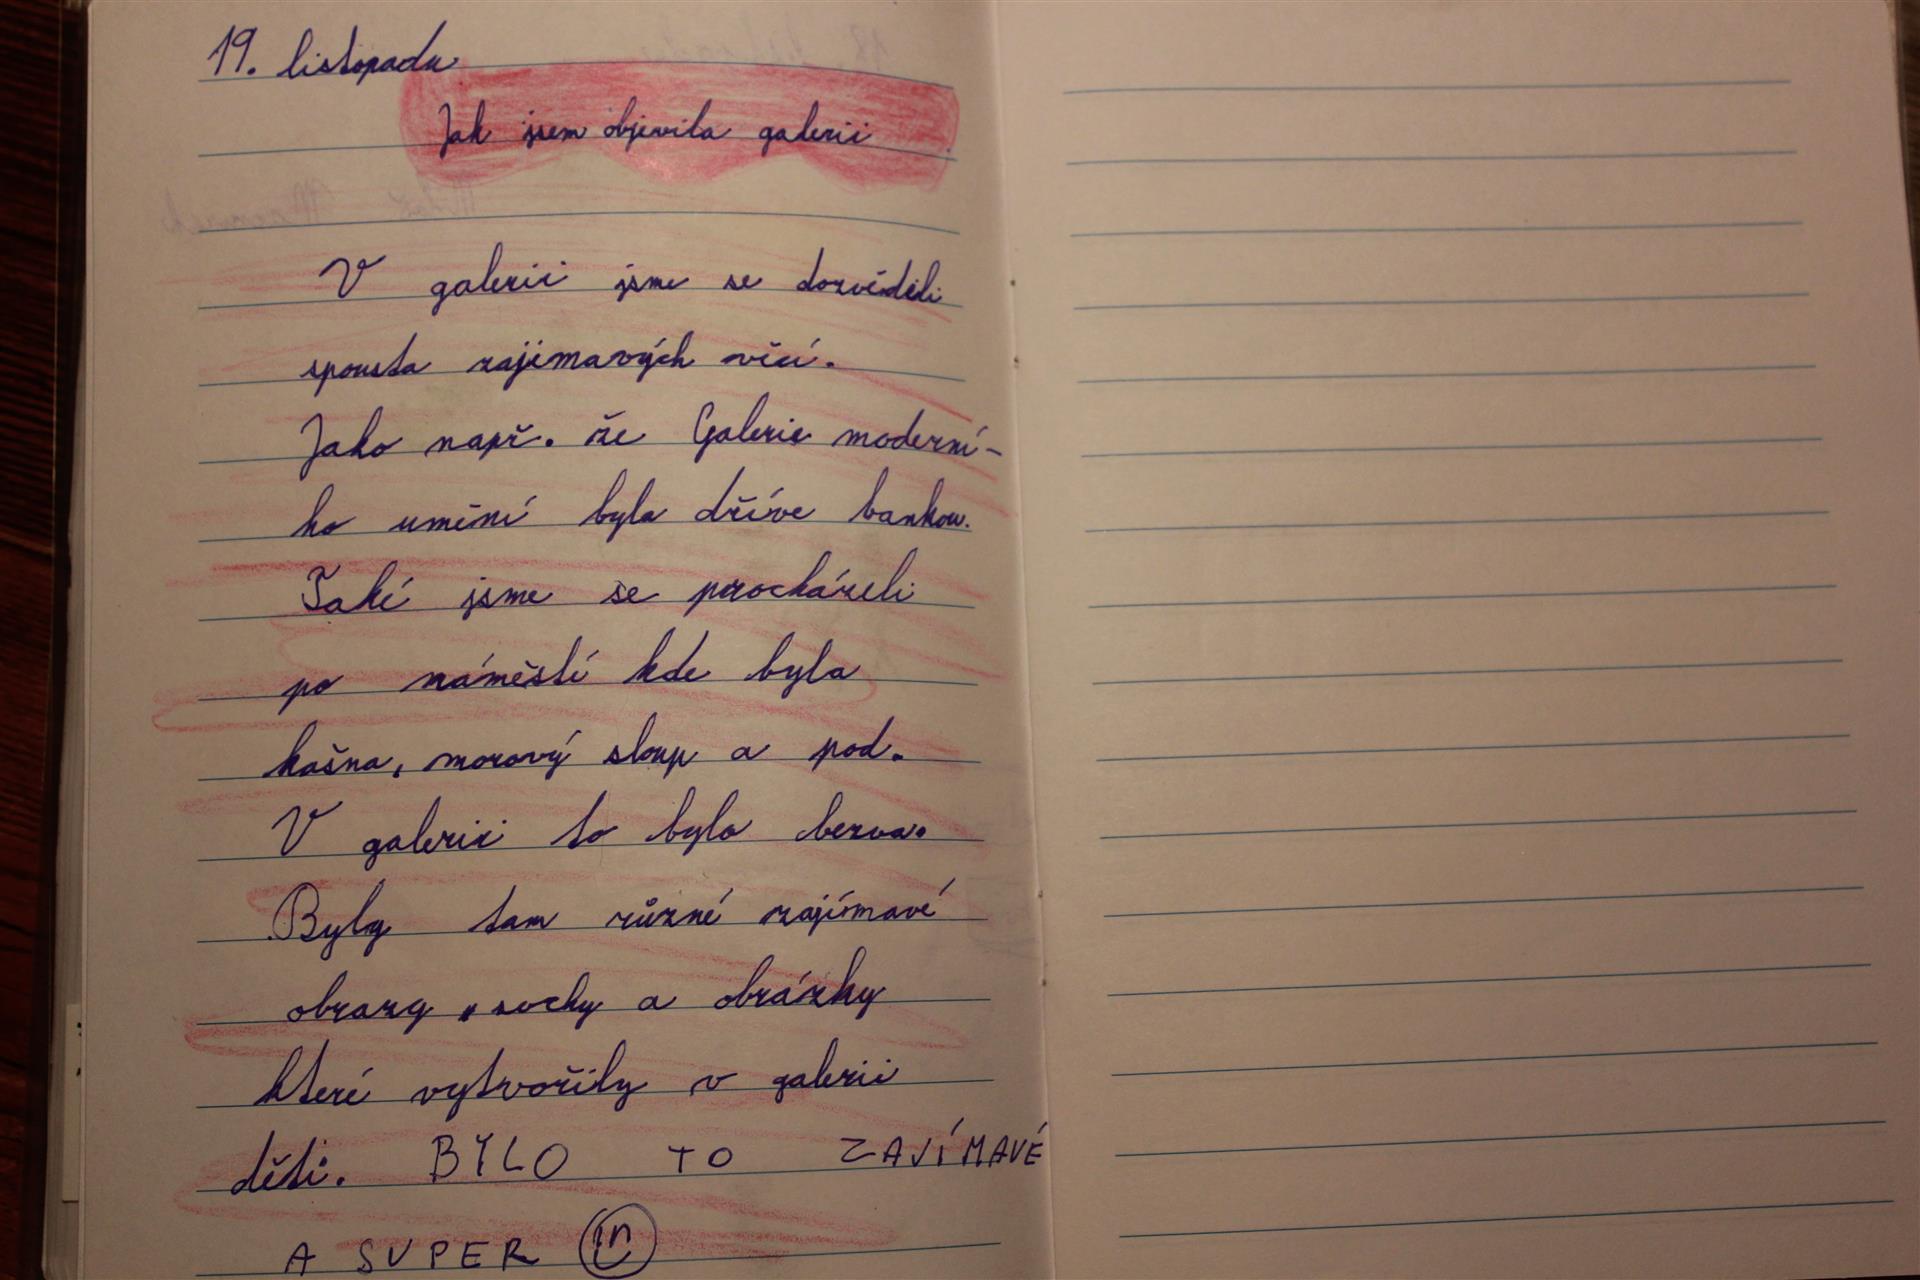 19. listopadu
Jak jsem objevila galerii
V galerii jsme se dozvěděli
spousta zajímavých věcí.
Jako např. že Galerie moderní-
ho umění byla dříve bankou.
Také jsme se procházeli
po náměstí kde byla
kašna, morový sloup a pod.
V galerii to bylo bezva.
Byly tam různé zajímavé
obrazy, sochy a obrázky
které vytvořily v galerii
děti. BYLO TO ZAJÍMAVÉ
A SUPER